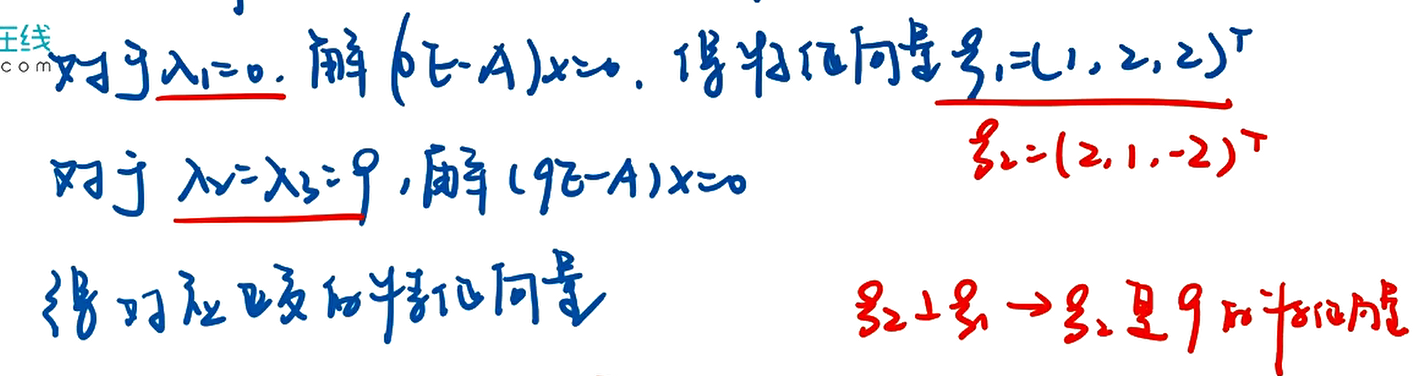 在线
com
对于λ₁=0. 解(0E-A)x=0. 得特征向量ξ₁=(1, 2, 2)ᵀ
ξ₂=(2, 1, -2)ᵀ
对于 λ₂=λ₃=9, 解(9E-A)x=0
得对应正交的特征向量
ξ₂⊥ξ₁→ξ₂是9的特征向量